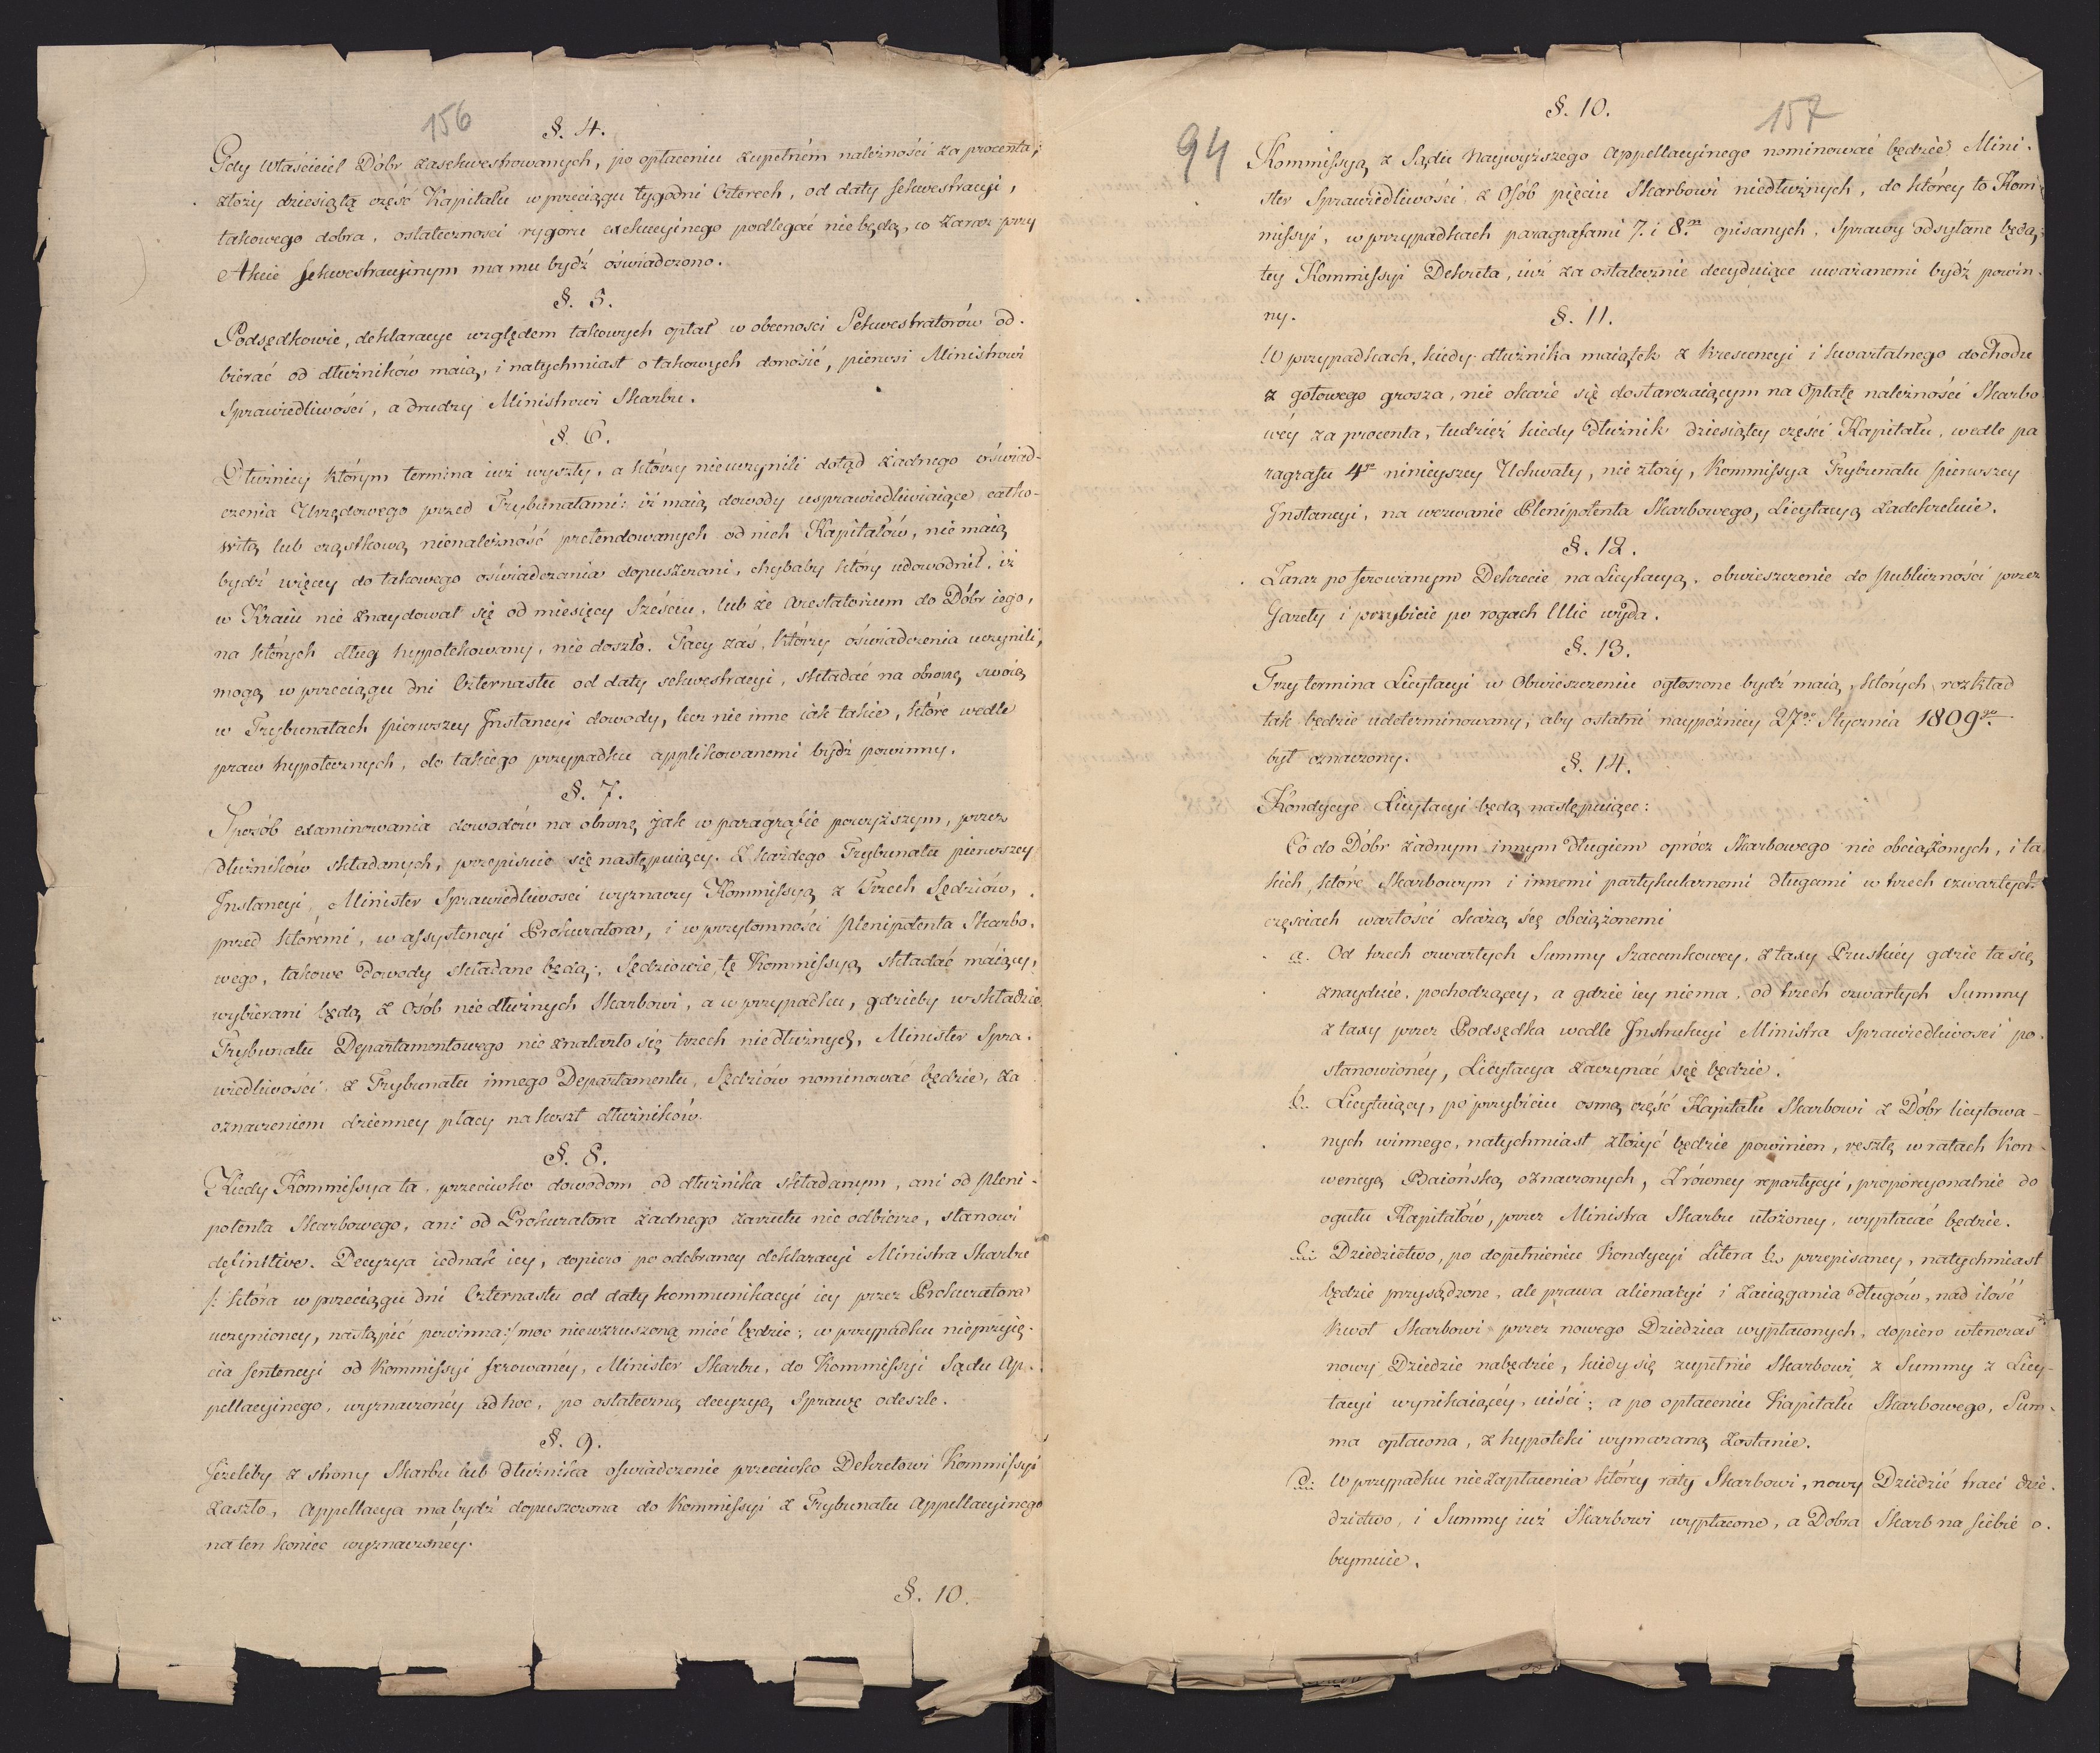 156
§. 4.
Gdy Właściciel Dóbr zasekwestrowanych, po opłaceniu zupełném należności za procenta,
złoży dziesiątą część Kapitału w przeciągu tygodni Czterech, od daty sekwestracyi,
takowego dobra, ostateczności rygoru exekucyinego podlegać nie będą, co zaraz przy
Akcie sekwestracyinym ma mu bydź oświadczono.
§. 5.
Podsędkowie, deklaracye względem takowych opłat w obecności Sekwestratorów od-
bierać od dłużników maią, i natychmiast o takowych donosić, pierwsi Ministrowi
Sprawiedliwości, a drudzy Ministrowi Skarbu.
§. 6.
Dłużnicy którym termina iuż wyszły, a którzy nie uczynili dotąd żadnego oświad-
czenia Urzędowego przed Trybunałami: iż maią dowody usprawiedliwiaiące całko-
witą lub cząstkową nienależność pretendowanych od nich Kapitałów, nie maią
bydź więcey do takowego oświadczania dopuszczani, chybaby który udowodnił, iż
w Kraiu nie znaydował się od miesięcy Sześciu, lub że Arestatorium do Dóbr iego,
na których dług hypotekowany, nie doszło. Tacy zaś, którzy oświadczenia uczynili,
mogą w przeciągu dni Czternastu od daty sekwestracyi, składać na obronę swoią
w Trybunałach pierwszey Instancyi dowody, lecz nie inne iak takie, które wedle
praw hypotecznych, do takiego przypadku applikowanemi bydź powinny.
§. 7.
Sposób examinowania dowodów na obronę jak w paragrafie powyższym, przez
dłużników składanych, przepisuie się następuiący. Z każdego Trybunału pierwszey
Instancyi, Minister Sprawiedliwości wyznaczy Kommissyą z Trzech Sędziów,
przed któremi, w assystencyi Prokuratora, i w przytomności Plenipotenta Skarbo-
wego, takowe Dowody składane będą; Sędziowie tę Kommissyą składać maiący,
wybierani będą z Osób nie dłużnych Skarbowi, a w przypadku, gdzieby w składzie
Trybunału Departamentowego nie znalazło się trzech nie dłużnych, Minister Spra-
wiedliwości, z Trybunału innego Departamentu, Sędziów nominować będzie, za
oznaczeniem dzienney płacy na koszt dłużników.
§. 8.
Kiedy Kommissya ta, przeciwko dowodom od dłużnika składanym, ani od Pleni-
potenta Skarbowego, ani od Prokuratora żadnego zarzutu nie odbierze, stanowi
definitive. Decyzya iednak iey, dopiero po odebraney deklaracyi Ministra Skarbu
/: która w przeciągu dni Czternastu od daty kommunikacyi iey przez Prokuratora
uczynioney, nastąpić powinna :/ moc niewzruszoną mieć będzie; w przypadku nieprzyię-
cia sentencyi od Kommissyi ferowanéy, Minister Skarbu, do Kommissyi Sądu Ap-
pellacyinego, wyznaczonéy ad hoc, po ostateczną decyzyą Sprawę odeszle.
§. 9.
Jeżeliby z strony Skarbu lub dłużnika oświadczenie przeciwko Dekretowi Kommissyi
zaszło, Appellacya ma bydź dopuszczona do Kommissyi z Trybunału Appellacyinego
na ten koniec wyznaczonéy.
§. 10.
94
157
§. 10.
Kommissyą z Sądu Naywyższego Appellacyinego nominować będzie Mini-
ster Sprawiedliwości z Osób pięciu Skarbowi niedłużnych, do którey to Kom-
missyi, w przypadkach paragrafami 7. i 8.m opisanych, Sprawy odsyłane będą,
tey Kommissyi Dekreta, iuż za ostatecznie decyduiące uważanemi bydź powin-
ny.
§. 11.
W przypadkach, kiedy dłużnika maiątek z krescencyi i kwartalnego dochodu
z gotowego grosza, nie okaże się dostarczaiącym na Opłatę należności Skarbo
wéy za procenta, tudzież kiedy Dłużnik dziesiątey części Kapitału, wedle pa
ragrafu 4go ninieyszey Uchwały, nie złoży, Kommissya Trybunału pierwszey
Instancyi, na wezwanie Plenipotenta Skarbowego, Licytacyą zadekretuie.
§. 12.
Zaraz po ferowanym Dekrecie na Licytacyą, obwieszczenie do publiczności przez
Gazety i przybicie po rogach Ulic wyda.
§. 13.
Trzy termina Licytacyi w Obwieszczeniu ogłoszone bydź maią, których rozkład
tak będzie udeterminowany, aby ostatni naypóźniey 27go Stycznia 1809go
był oznaczony.
§. 14.
Kondycye Licytacyi będą następuiące:
Co do Dóbr żadnym innym Długiem oprócz Skarbowego nie obciążonych, i ta
kich, które Skarbowym i innemi partykularnemi długami w trzech czwartych
częściach wartości okażą się obciążonemi
a. Od trzech czwartych Summy Szacunkowey, z taxy Pruskiéy gdzie ta się
znayduie, pochodzącey, a gdzie iey niema, od trzech czwartych Summy
z taxy przez Podsędka wedle Instrukcyi Ministra Sprawiedliwości po-
stanowionéy, Licytacya zaczynać się będzie.
b. Licytuiący, po przybiciu osmą część Kapitału Skarbowi z Dóbr licytowa-
nych winnego, natychmiast złożyć będzie powinien, resztę w ratach Kon-
wencyą Baiońską oznaczonych, z równey repartycyi, proporcyonalnie do
ogułu Kapitałów, przez Ministra Skarbu ułożoney, wypłacać będzie.
c. Dziedzictwo, po dopełnieniu Kondycyi Litera b. przepisaney, natychmiast
będzie przysądzone, ale prawa alienacyi i zaciągania długów, nad ilość
Kwot Skarbowi przez nowego Dziedzica wypłaconych, dopiero wtenczas
nowy Dziedzic nabędzie, kiedy się zupełnie Skarbowi z Summy z Licy-
tacyi wynikaiącéy, uiści; a po opłaceniu Kapitału Skarbowego, Sum-
ma opłacona, z hypoteki wymazaną zostanie.
d. W przypadku niezapłacenia którey raty Skarbowi, nowy Dziedzic traci dzie-
dzictwo, i Summy iuż Skarbowi wypłacone, a Dobra Skarb na siebie o-
beymuie.